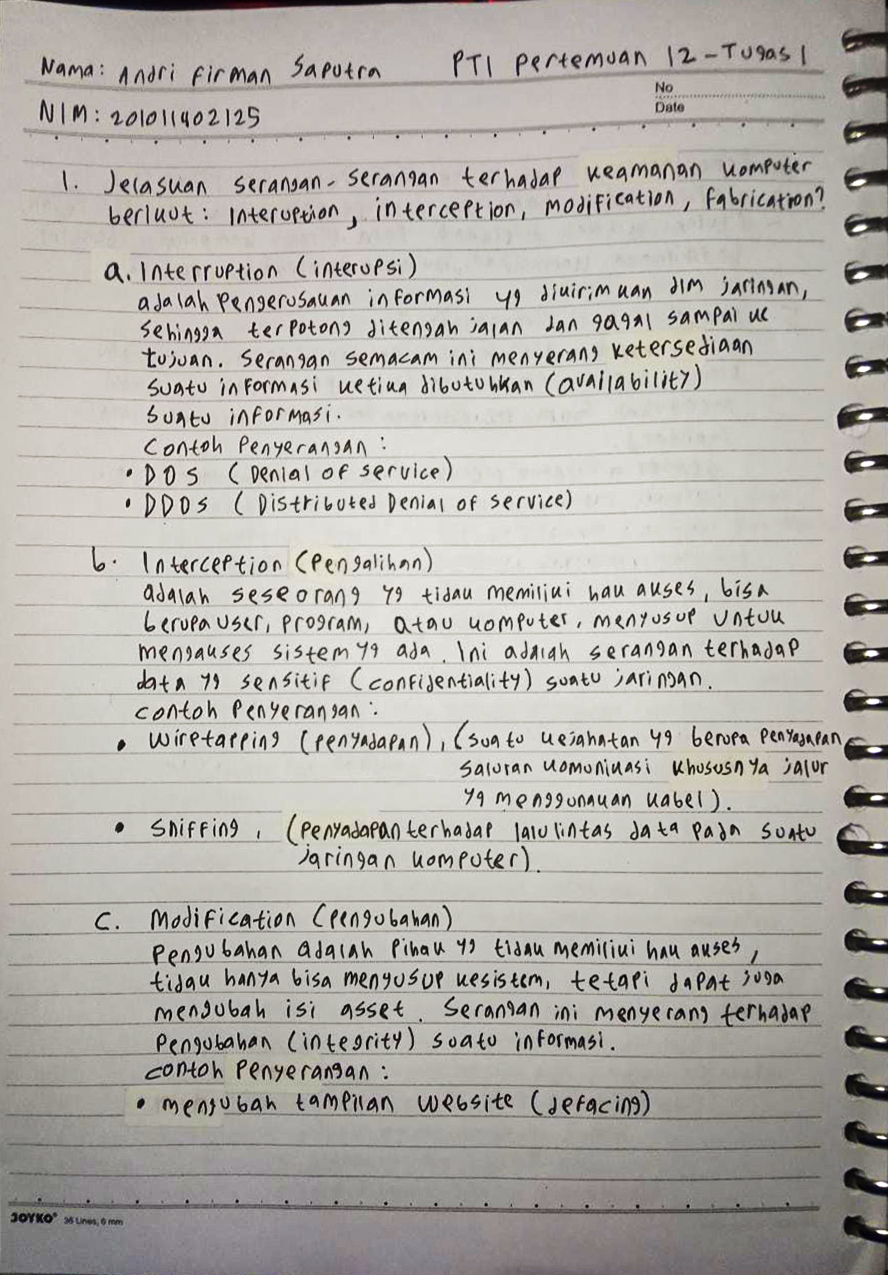 Nama: Andri Firman Saputra PTI Pertemuan 12 - Tugas 1
No
NIM: 201011402125
Date
1. Jelaskan serangan-serangan terhadap keamanan komputer
berikut: Interuption, interception, modification, fabrication?
a. Interruption (interupsi)
adalah Pengerusakan informasi yg dikirimkan dlm jaringan,
sehingga terpotong ditengah jalan dan gagal sampai ke
tujuan. Serangan semacam ini menyerang ketersediaan
suatu informasi ketika dibutuhkan (availability)
suatu informasi.
Contoh Penyerangan :
• DOS (Denial of service)
• DDOS (Distributed Denial of service)
b. Interception (Pengalihan)
adalah seseorang yg tidak memiliki hak akses, bisa
berupa user, program, atau komputer, menyusup untuk
mengakses sistem yg ada. Ini adalah serangan terhadap
data yg sensitif (confidentiality) suatu jaringan.
contoh Penyerangan :
• Wiretapping (penyadapan), (suatu kejahatan yg berupa Penyadapan
saluran komunikasi khususnya jalur
yg menggunakan kabel).
• Sniffing, (Penyadapan terhadap lalulintas data pada suatu
jaringan komputer).
C. Modification (pengubahan)
Pengubahan adalah Pihak yg tidak memiliki hak akses,
tidak hanya bisa menyusup kesistem, tetapi dapat juga
mengubah isi asset. Serangan ini menyerang terhadap
Pengubahan (integrity) suatu informasi.
contoh Penyerangan :
• mengubah tampilan website (defacing)
JOYKO® 36 Lines, 6 mm